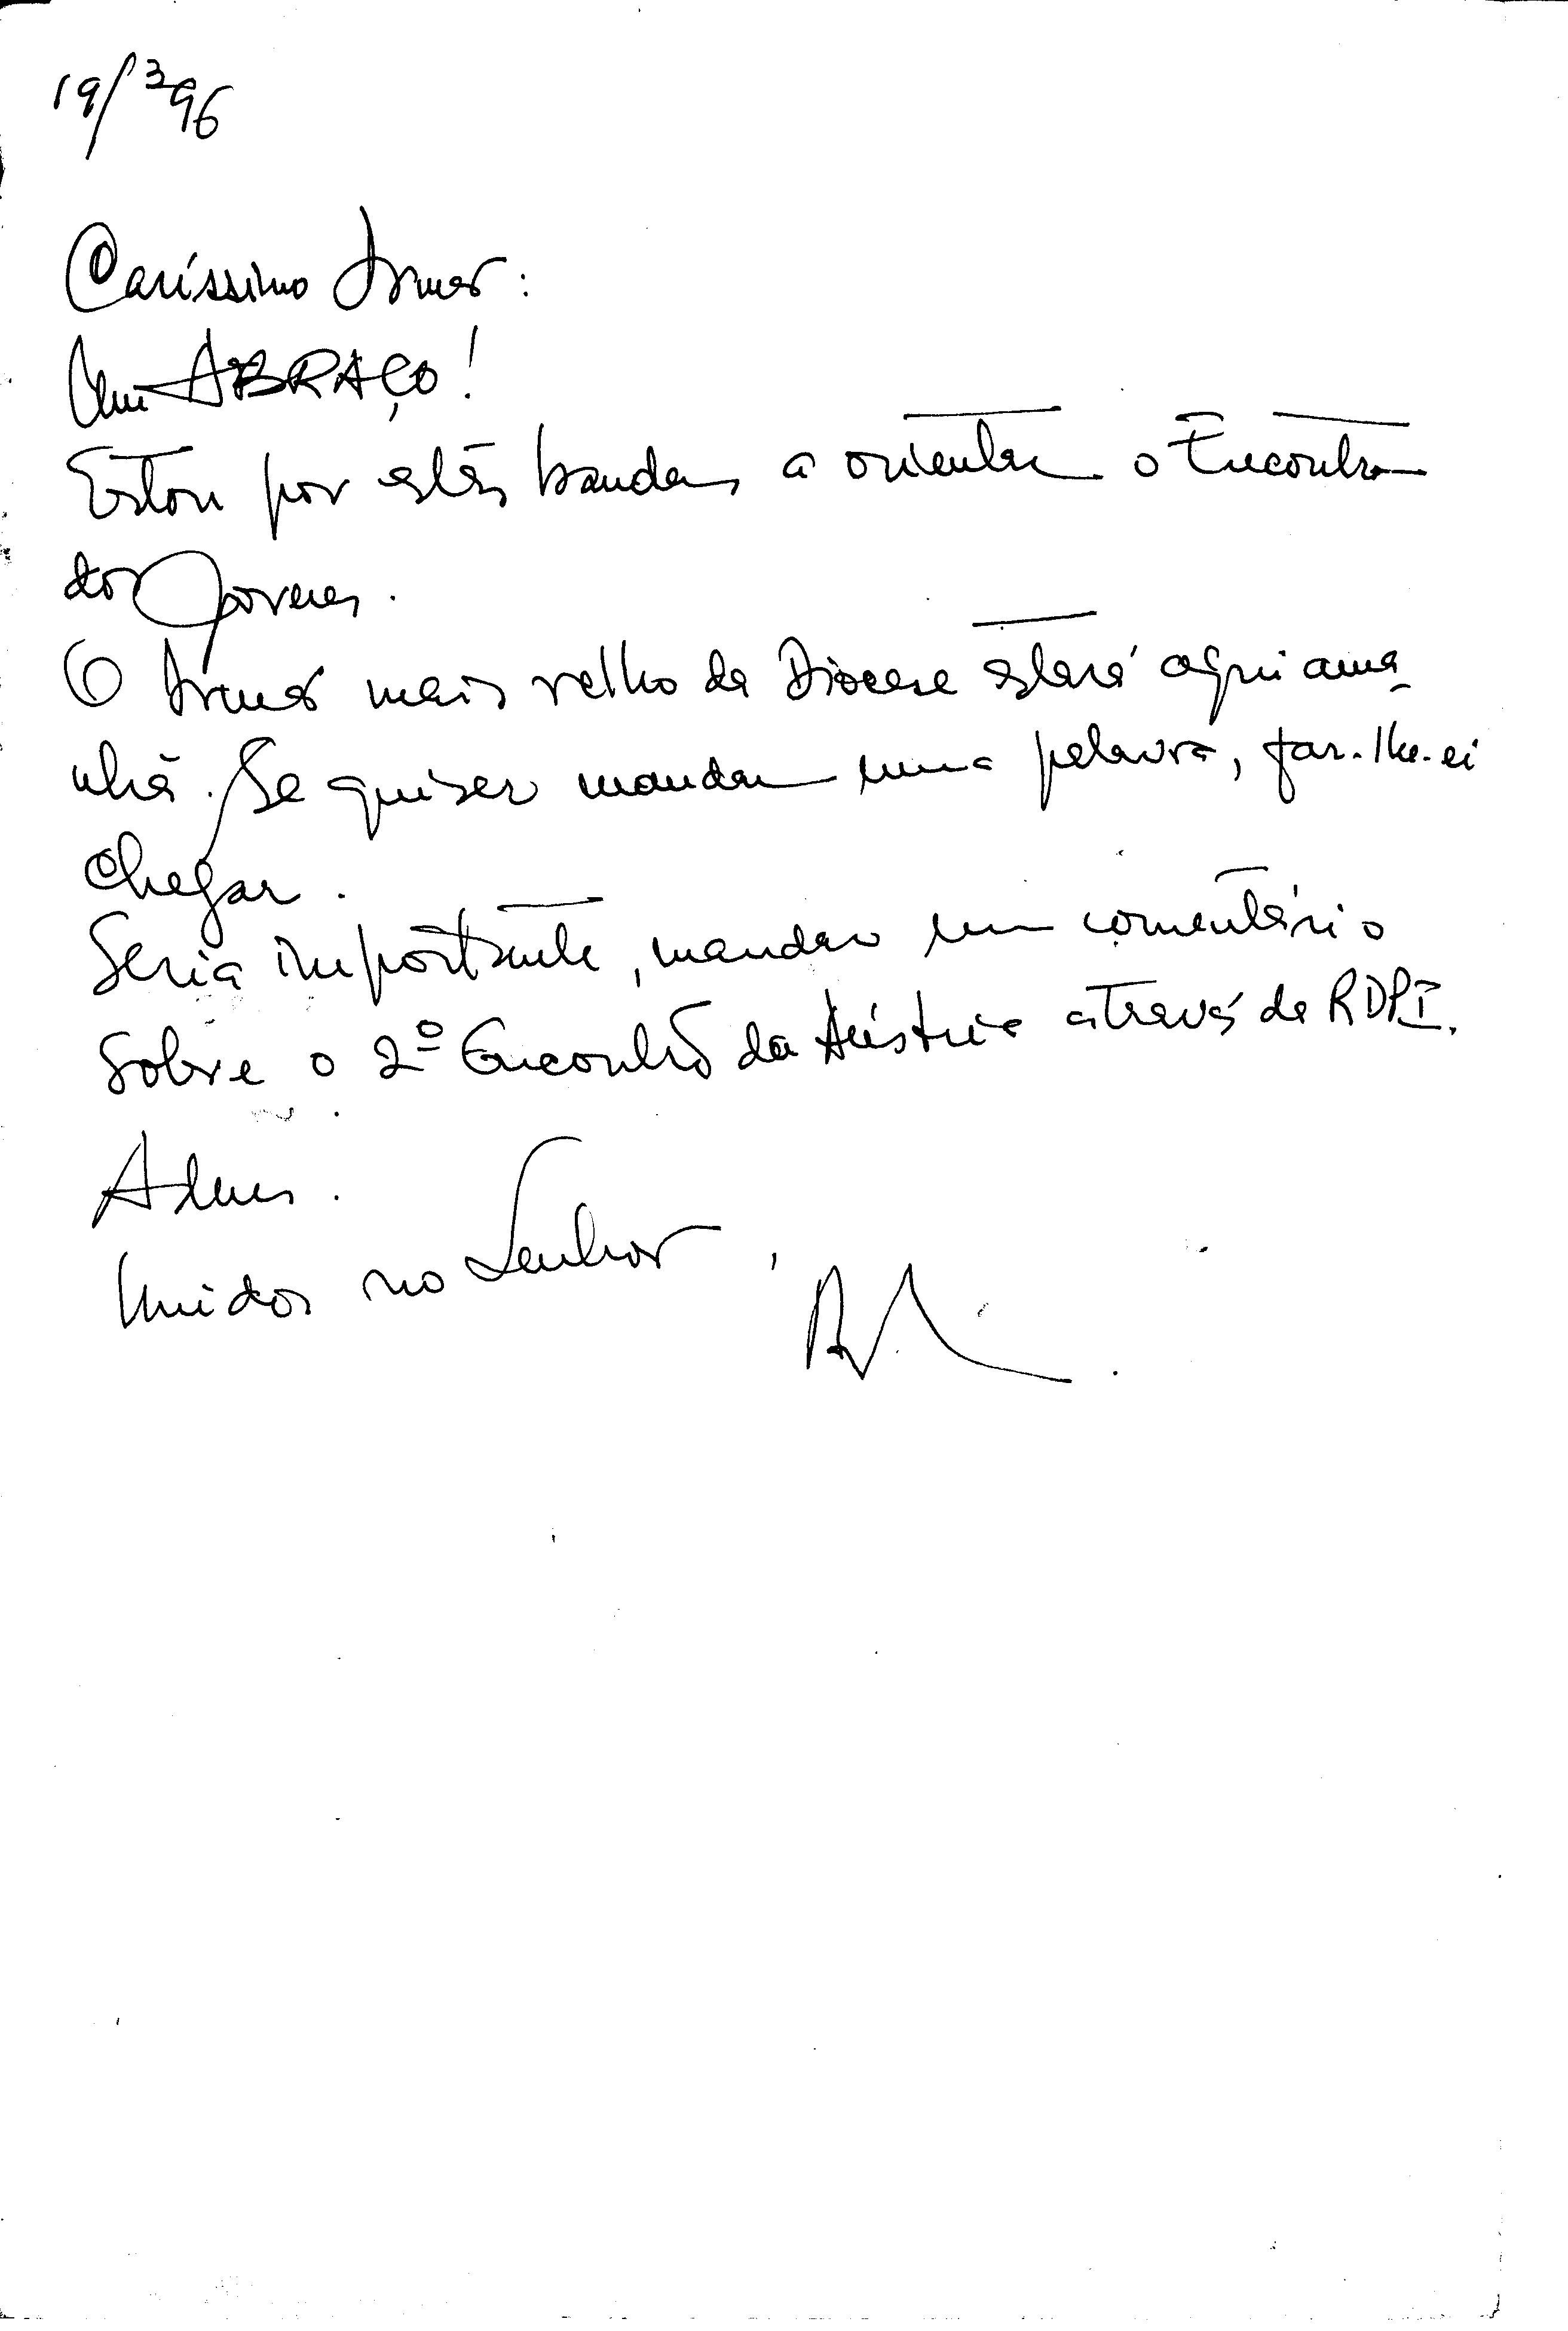 19/3 96
Caríssimo Irmão:
Um ABRAÇO!
Estou por estas bandas a orientar o Encontro
dos Jovens.
O Irmão mais velho da Diocese estará aqui ama
nhã. Se quiser mandar uma palavra, far-lhe-ei
chegar.
Seria importante, mandar um comentário
sobre o 2º Encontro da Áustria através da RDPI.
Adeus.
Unidos no Senhor,